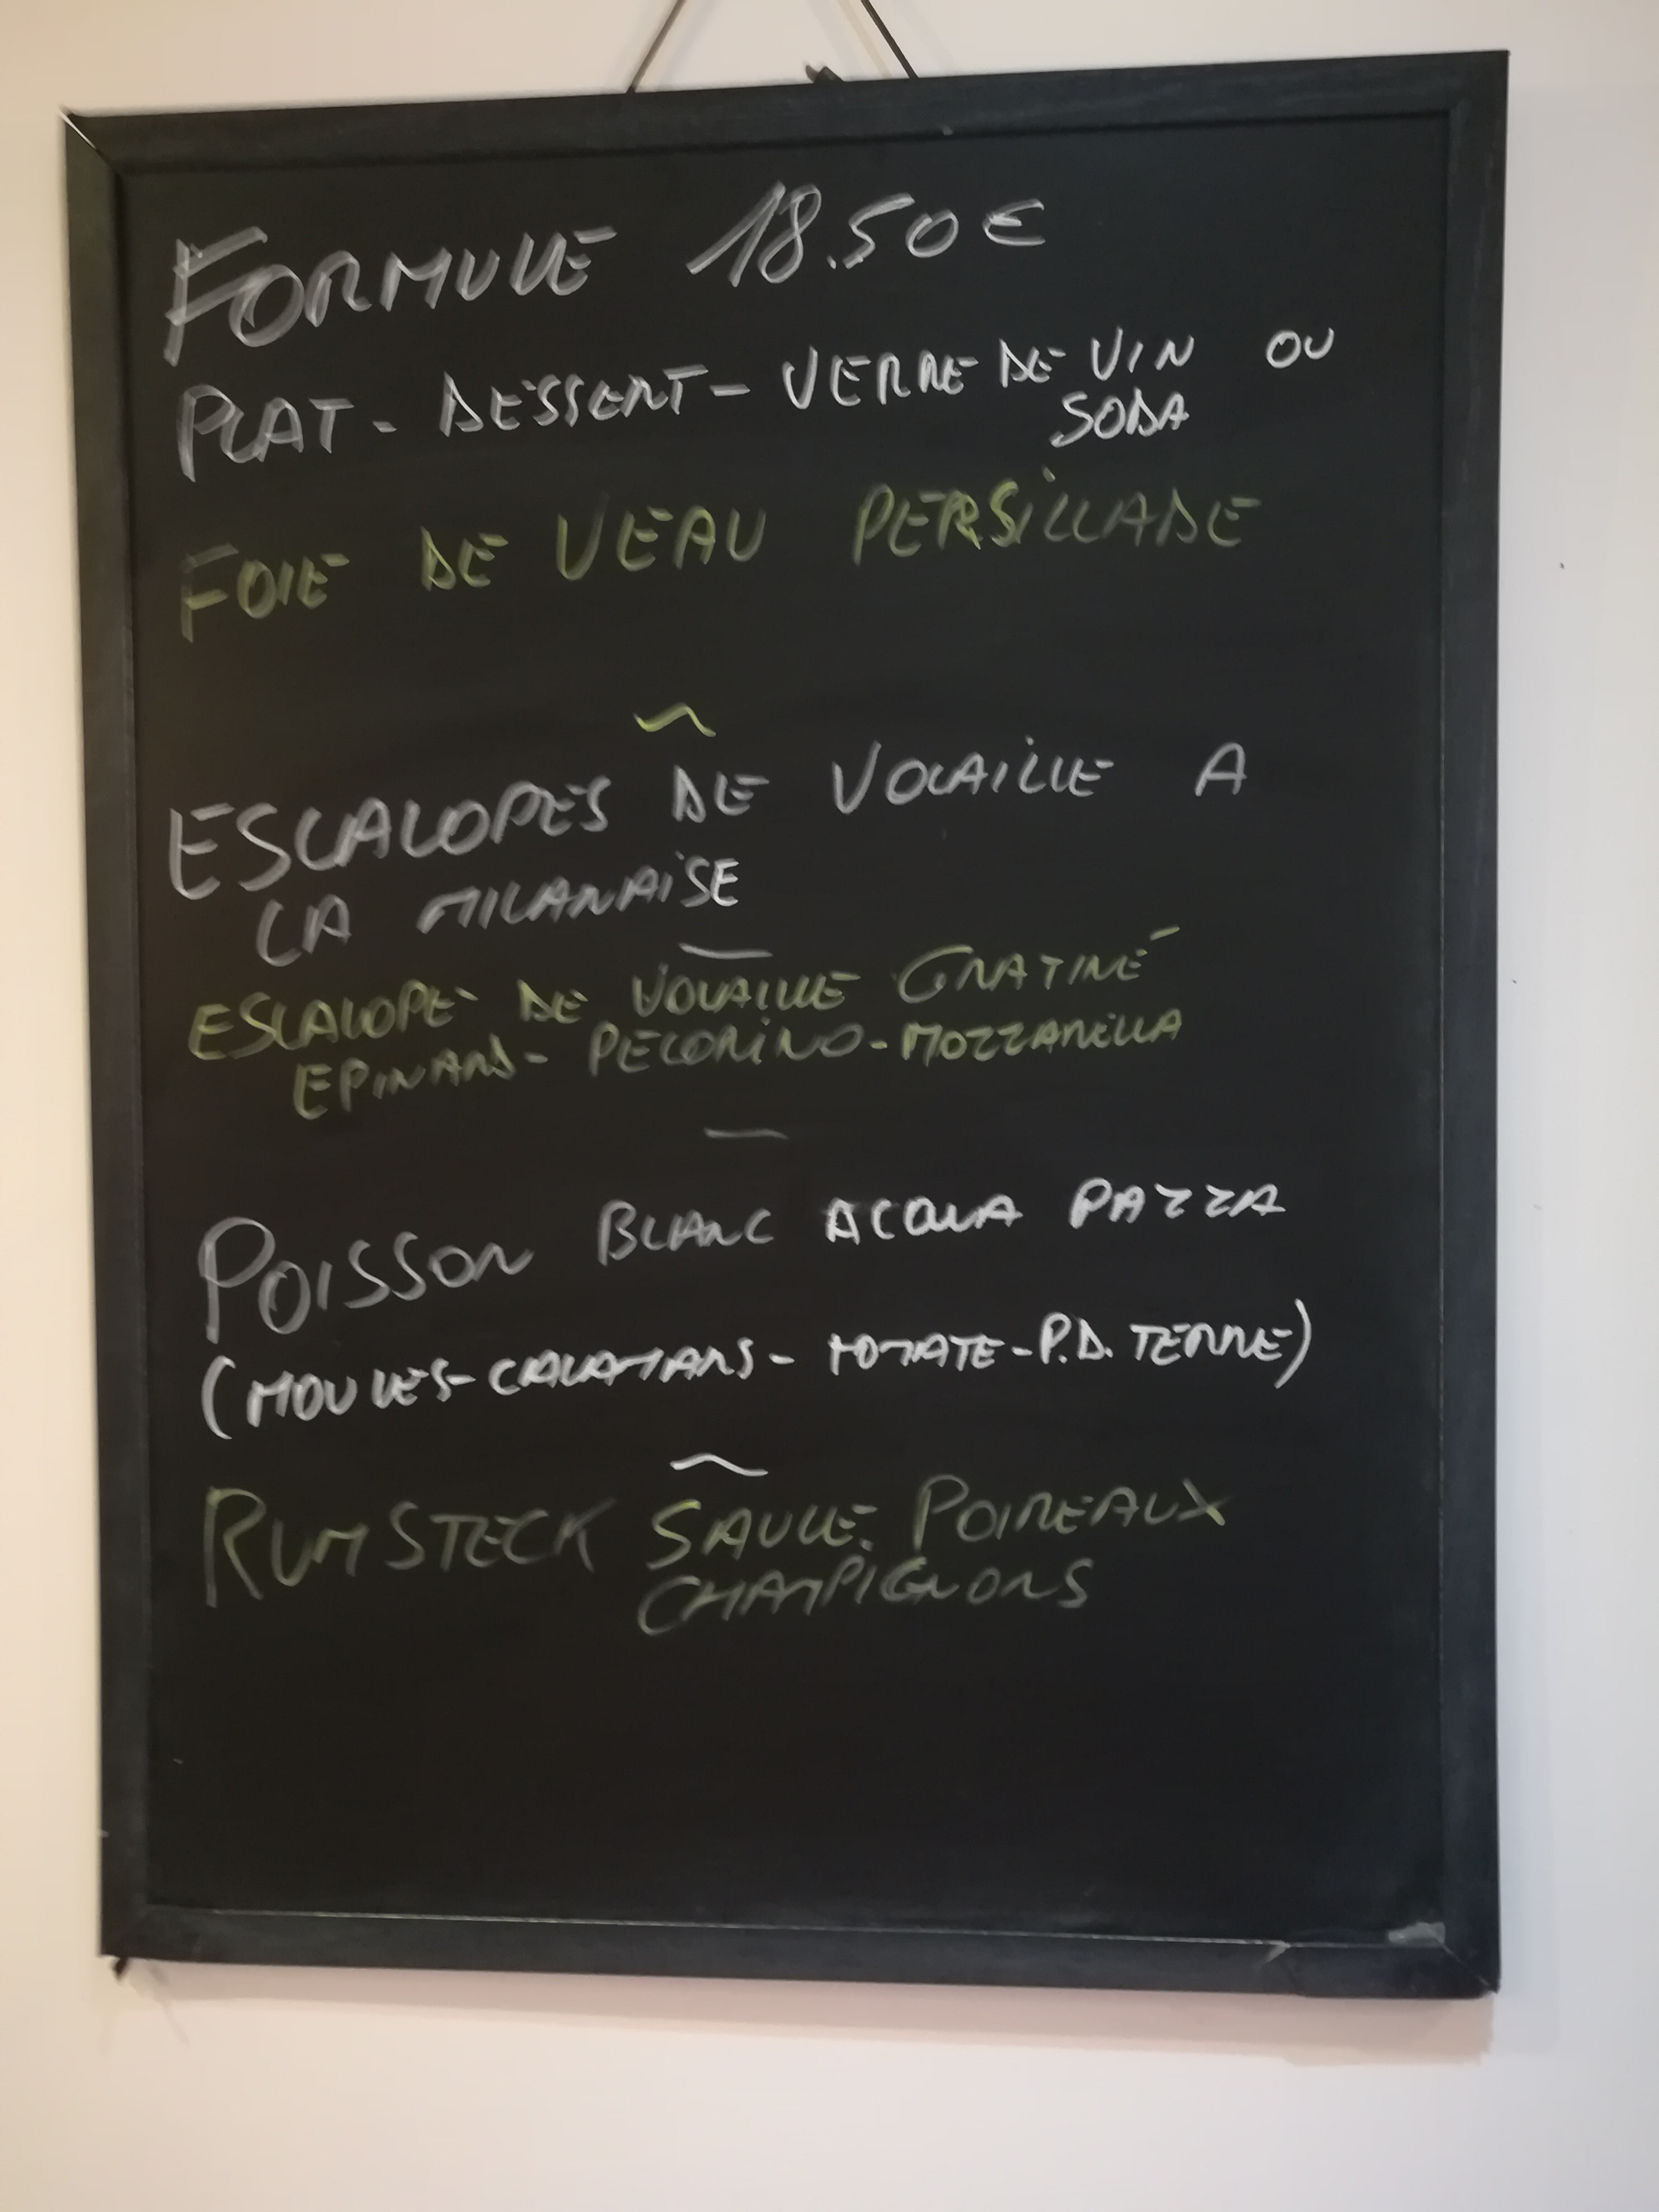 FORMULE 18.50€
PLAT - DESSERT - VERRE DE VIN OU
SODA
FOIE DE VEAU PERSiLLADE
~
ESCALOPES DE VOLAiLLE A
LA MILANAiSE
—
ESCALOPE DE VOLAILLE GRATINÉ
EPINARDS - PECORiNO - MOZZARELLA
—
POISSON BLANC ACQUA PAZZA
(MOULES - CALAMARS - TOMATE - P.D. TERRE)
~
RUMSTECK SAUCE POIREAUX
CHAMPIGNONS